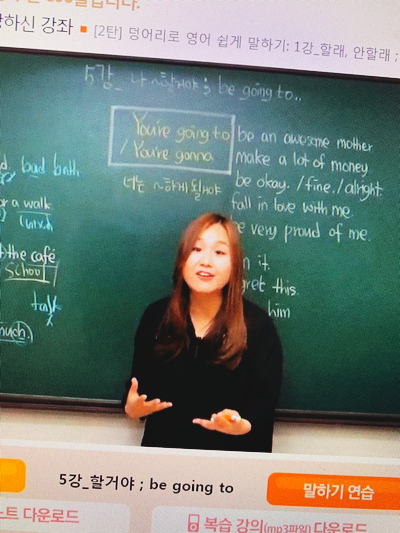 하신 강좌 ■ [2탄] 덩어리로 영어 쉽게 말하기: 1강_할래, 안할래 ;
5강_ 나 ~할거야 ; be going to..
You're going to
/ You're gonna
너는 ~하게 될거야
be an awesome mother.
make a lot of money
be okay. /fine. /alright.
fall in love with me.
be very proud of me.
it.
this.
him
bad bath
a walk
lunch
the café
school
talk
much.)
5강_할거야 ; be going to
말하기 연습
노트 다운로드
복습 강의(mp3파일) 다운로드